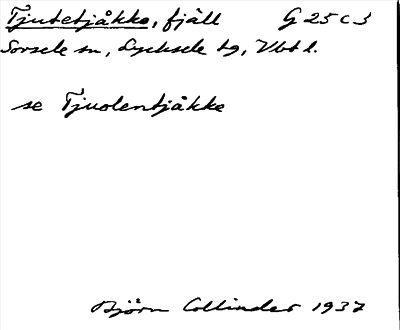 Tjutetjåkko, fjäll G 25 c 3
Sorsele sn, Lycksele tg, Vbt l.
se Tjuolentjåkke
Björn Collinder 1937